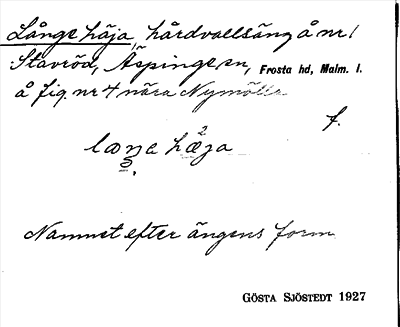 Långe häja, hårdvallsäng å nr 1
Stavröd, Äspinge sn, Frosta hd, Malm. l.
å fig. nr 4 nära Nymölla
f.
Namnet efter ängens form
GÖSTA SJÖSTEDT 1927